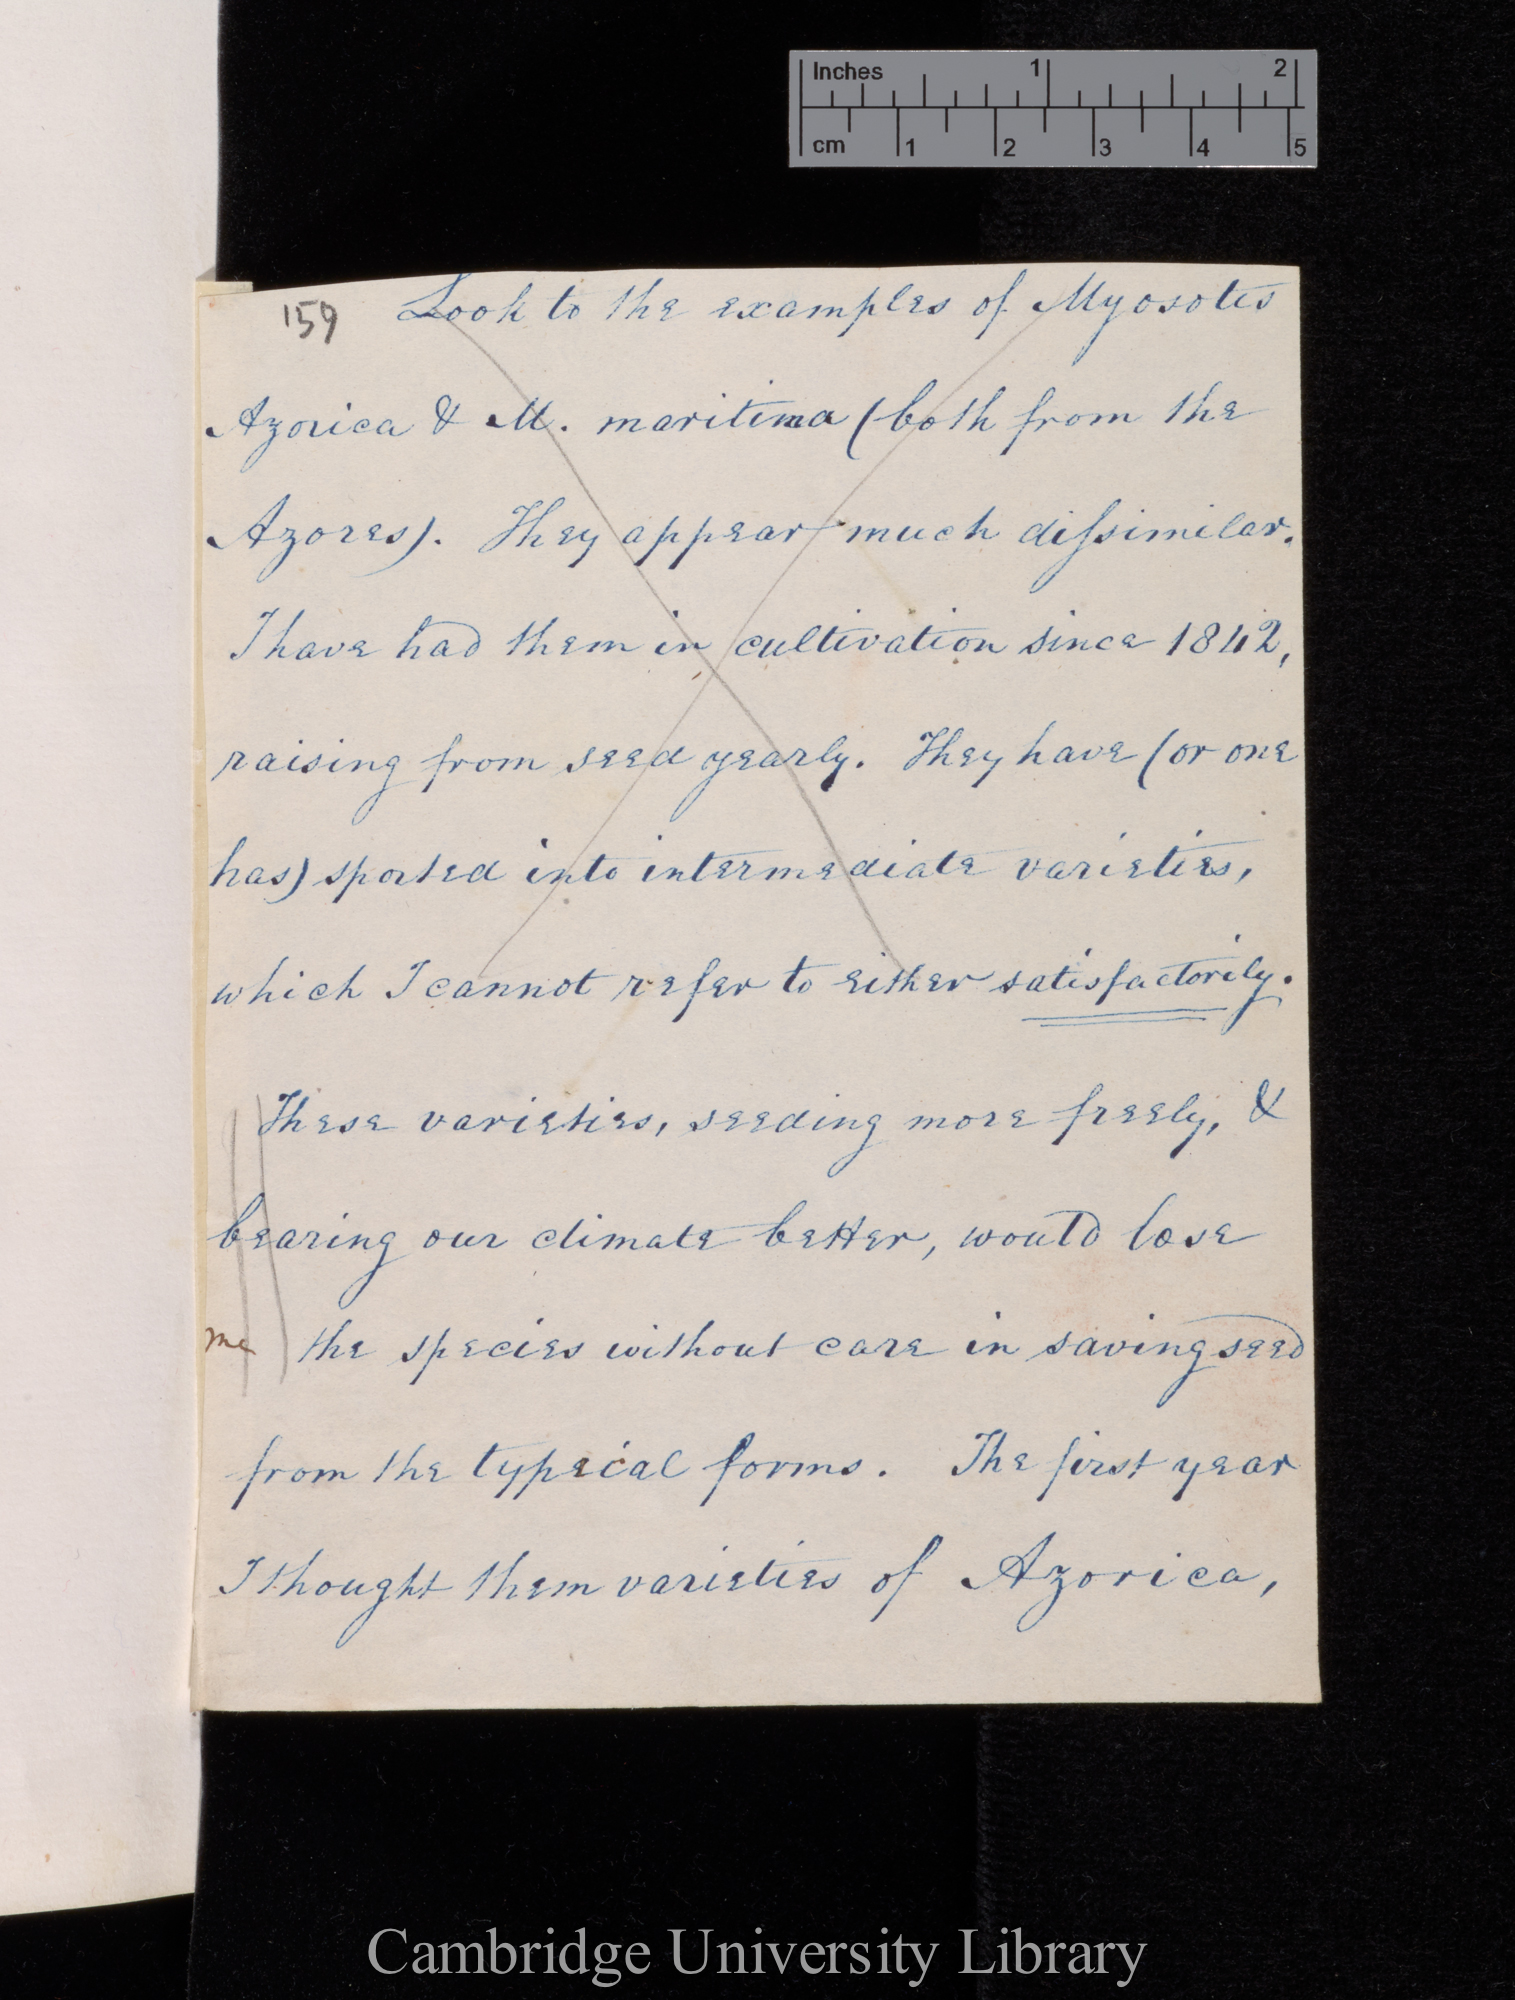 Inches 1 2
cm 1 2 3 4 5
159 Look to the examples of Myosotis
Azorica & M. maritima (both from the
Azores). They appear much dissimilar.
I have had them in cultivation since 1842,
raising from seed yearly. They have (or one
has) sported into intermediate varieties,
which I cannot refer to either satisfactorily.
These varieties, seeding more freely, &
bearing our climate better, would lose
me the species without care in saving seed
from the typical forms. The first year
I thought them varieties of Azorica,
Cambridge University Library